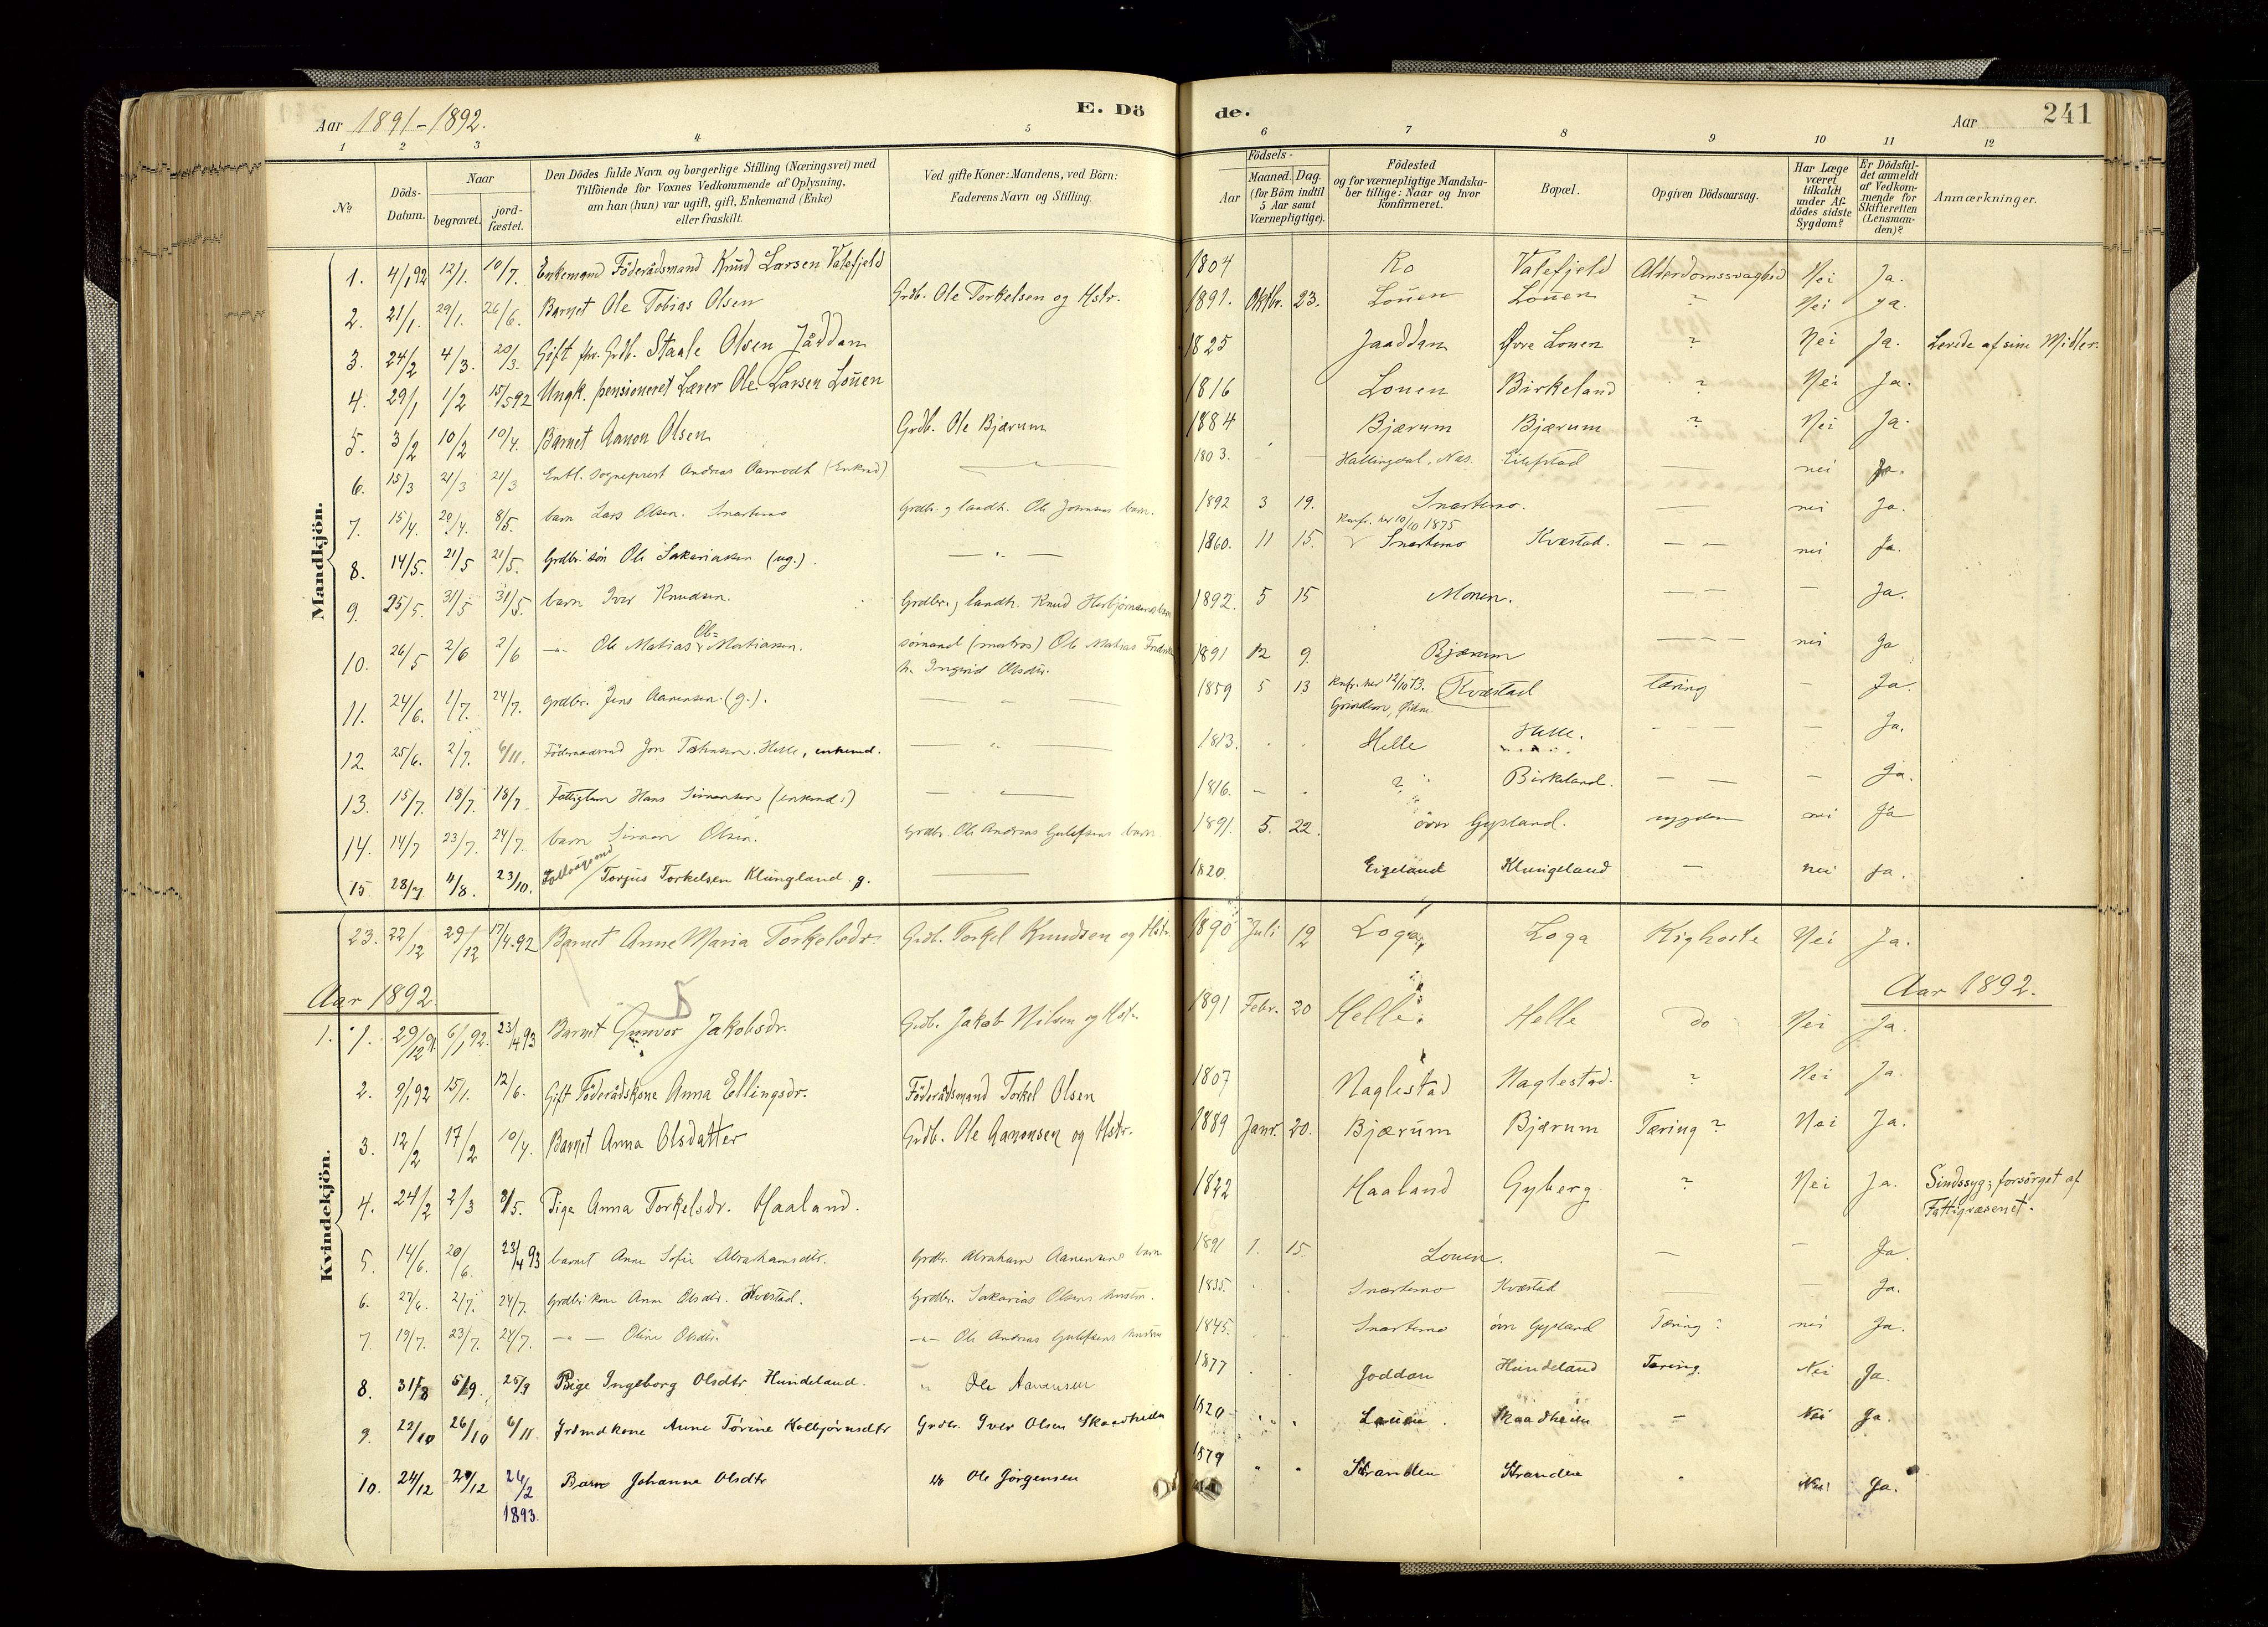 Aar 1891-1892.
E. Dö
de.
Aar
241
1 2 3 4 5 6 7 8 9 10 11 12
No
Döds-Datum.
Naar
begravet.
jord-fæstet.
Den Dödes fulde Navn og borgerlige Stilling (Næringsvei) med
Tilföiende for Voxnes Vedkommende af Oplysning,
om han (hun) var ugift, gift, Enkemand (Enke)
eller fraskilt.
Ved gifte Koner: Mandens, ved Börn:
Faderens Navn og Stilling.
Födsels-
Aar
Maaned. Dag.
(for Börn indtil
5 Aar samt
Værnepligtige).
Födested
og for værnepligtige Mandska-
ber tillige: Naar og hvor
konfirmeret.
Bopæl.
Opgiven Dödsaarsag.
Har Læge
været
tilkaldt
under Af-
dödes sidste
Sygdom?
Er Dödsfal-
det anmeldt
af Vedkom-
mende for
Skifteretten
(Lensman-
den)?
Anmærkninger.
Mandkjön.
1. 4/1 92 12/1. 10/7. Enkemand Föderådsmand Knud Larsen Vatefjeld 1804 Ro Vatefjeld Alderdomssvaghed Nei Ja.
2. 21/1. 29/1. 26/6. Barnet Ole Tobias Olsen Grdb. Ole Torkelsen og Hstr. 1891. Oktbr. 23. Louen Louen ? Nei Ja.
3. 24/2 4/3. 20/3. Gift Grdb. Staale Olsen Jåddan 1825 Jaaddan Øvre Louen ? Nei Ja. Levede af sine Midler.
4. 29/1 1/2 15/5 92 Ungk. pensioneret Lærer Ole Larsen Louen 1816 Louen Birkeland ? Nei Ja.
5. 3/2 10/2 10/4. Barnet Aanon Olsen Grdb. Ole Bjærum 1884 Bjærum Bjærum ? Nei Ja.
6. 15/3 21/3 21/3 Entl. Sogneprest Andreas Aamodt (Enkmd) — " — 1803. Hallingdal, Næs. Eilefstad — nei Ja.
7. 15/4. 20/4. 8/5. barn Lars Olsen. Snartemo Grdbr. og landh. Ole Johnsens barn. 1892 3 19. Snartemo. — nei Ja.
8. 14/5. 21/5 21/5. Grdbr. sön Ole Sakariasen (ug.). — " — 1860. 11 15. Knfr. her 10/10 1875 Snartemo Kvæstad. — — nei Ja.
9. 25/5. 31/5 31/5. barn Iver Knudsen. Grdbr. landh. Knud 1892. 5 15 Monen. — — — Ja.
10. 26/5 2/6 2/6 —"— Ole Matias Ole= Matiassen. sömand (matros) Ole Matias
h. Ingrid Olsdtr. 1891 12 9. Bjærum — — — nei Ja
11. 24/6. 1/7. 24/7. grdbr. Jens Aanensen (g.). — " — 1859 5 13 Knfr. her 12/10 73. Kvæstad tæring — Ja.
12. 25/6. 2/7. 6/11. Jon Helle, enkemd. — " — 1813. Helle Helle. — — — — Ja.
13. 15/7. 18/7. 18/7. Fattiglem Hans Simonsen (enkmd.) — " — 1816. ? Birkeland. — — — Ja.
14. 14/7 23/7. 24/7. barn Simon Olsen. Grdbr. Ole Andreas barn 1891. 5. 22. övre Gysland. nei Ja
15 28/7. 4/8. 23/10. Torjus Torkelsen Klungland. g. — 1820. Eigeland Klungeland — nei Ja.
Kvindekjön.
23. 22/12 29/12 17/4.92 Barnet Anne Maria Torkelsdr. Grdb. Torkel Knudsen og Hstr. 1890 Juli 12 Loga Loga Kighoste Nei Ja.
Aar 1892.
Aar 1892.
1. 1. 29/12 91. 6/1 92. 23/4 93 Barnet Gunvor Jakobsdr. Grdb. Jakob Nilsen og Hstr. 1891 Febr. 20 Helle. Helle do Nei Ja.
2. 9/1 92 15/1. 12/6. Gift Föderådskone Anna Ellingsdr. Föderådsmand Torkel Olsen 1807 Naglestad Naglestad. ? Nei Ja.
3. 12/2 17/2 10/4. Barnet Anna Olsdatter Grdb. Ole Aanonsen og Hstr. 1889 Janr. 20. Bjærum Bjærum Tæring ? Nei Ja.
4. 24/2 2/3 8/5. Pige Anna Torkelsdr. Haaland. 1822 Haaland Gyberg ? Nei Ja. Sindssyg; forsörget af
Fattigvæsenet.
5. 14/6. 20/6. 23/4 93 barnet Anne Sofie Abrahamsdtr. Grdbr. Abraham Aanensens barn 1891 1. 15. Louen. — — Ja.
6. 27/6. 2/7. 24/7. Grdbr. kone Anne Olsdtr. Kvæstad. Grdbr. Sakarias Olsens hustru. 1835. Snartemo Kvæstad — — Ja.
7. 19/7. 23/7. 24/7. —"— Oline Olsdtr. —"— Ole Andreas hustru 1845. Snartemo övre Gysland Tæring ? nei Ja.
8. 31/8 5/9. 25/9 Pige Ingeborg Olsdtr Hundeland. " Ole Aanensen 1877 Joddan Hundeland Tæring. Nei Ja.
9. 22/10 26/10 6/11. Anne Torine Kolbjørnsdtr Grdbr. Iver Olsen Skaadheien 1820 Louen Skaadheien — Nei Ja.
10. 24/12 29/12 26/2 1893. Barn Johanne Olsdtr do Ole Jörgensen 1879 Stranden Stranden Nei Ja.